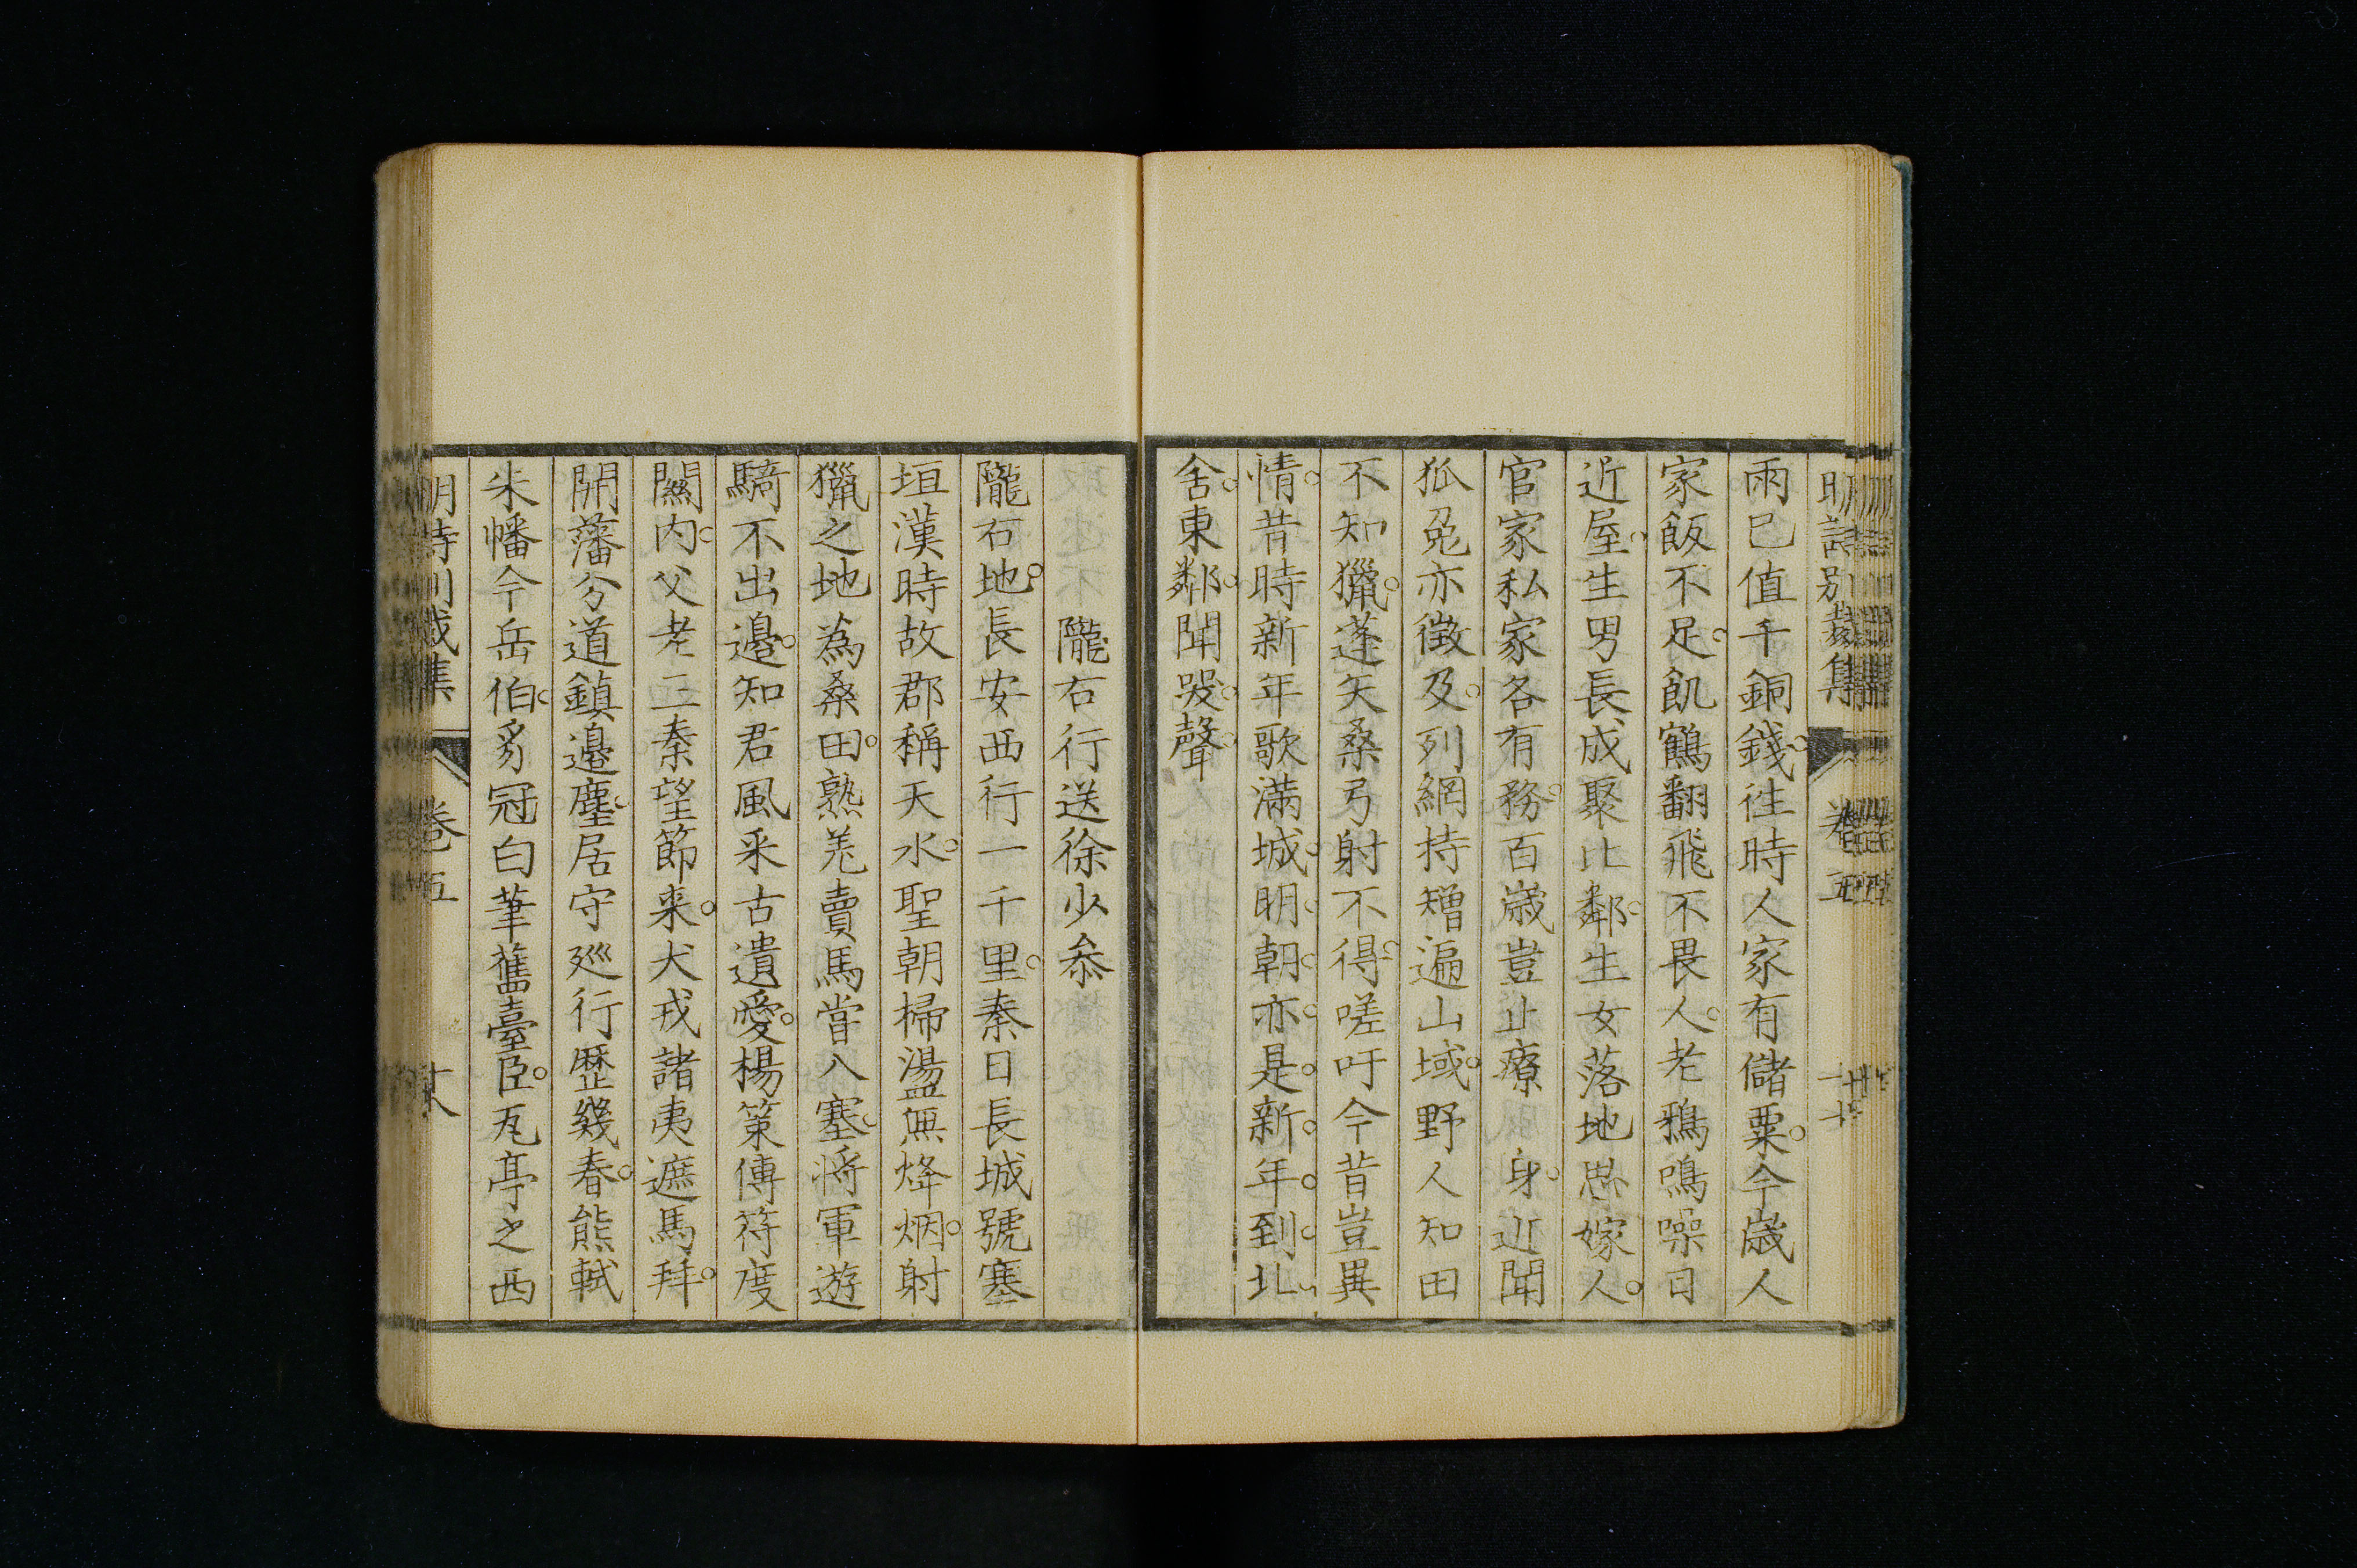 明詩別裁集 卷五
雨已值千銅錢徃時人家有儲粟今歲人
家飯不足飢鶴翻飛不畏人老鴉鳴噪日
近屋生男長成聚比鄰生女落地思嫁人
官家私家各有務百歲豈止療身近聞
狐兔亦徵及列網持矰遍山域野人知田
不知獵蓬矢桑弓射不得嗟吁今昔豈異
情昔時新年歌滿城明朝亦是新年到北
舍東鄰聞哭聲
隴右行送徐少叅
隴右地長安西行一千里秦日長城號塞
垣漢時故郡稱天水聖朝掃盪無烽烟射
獵之地為桑田熟羌賣馬嘗入塞將軍遊
騎不出邊知君風采古遺愛楊策傳符度
關内父老三秦望節来犬戎諸夷遮馬拜
開藩分道鎮邊塵居守廵行歷幾春熊軾
朱幡今岳伯豸冠白筆舊臺臣瓦亭之西
明詩別裁集 卷五